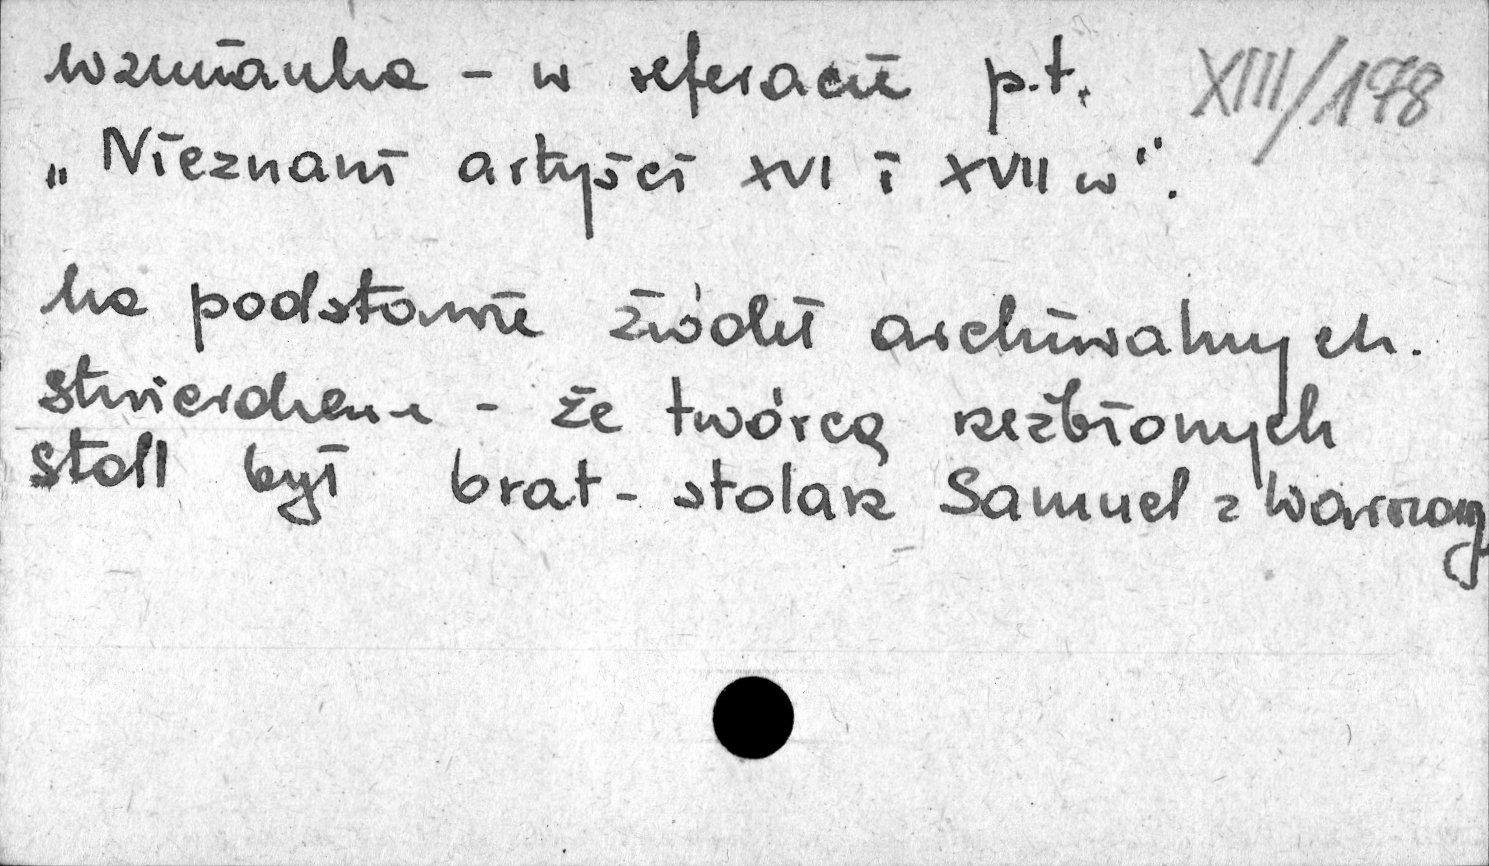 wzmianka - w referacie p.t. XIII/178
„Nieznani artyści XVI i XVII w".
na podstawie źródeł archiwalnych.
stwierdzenie - że twórcą rzeźbionych
stall był brat - stolarz Samuel z Warszawy